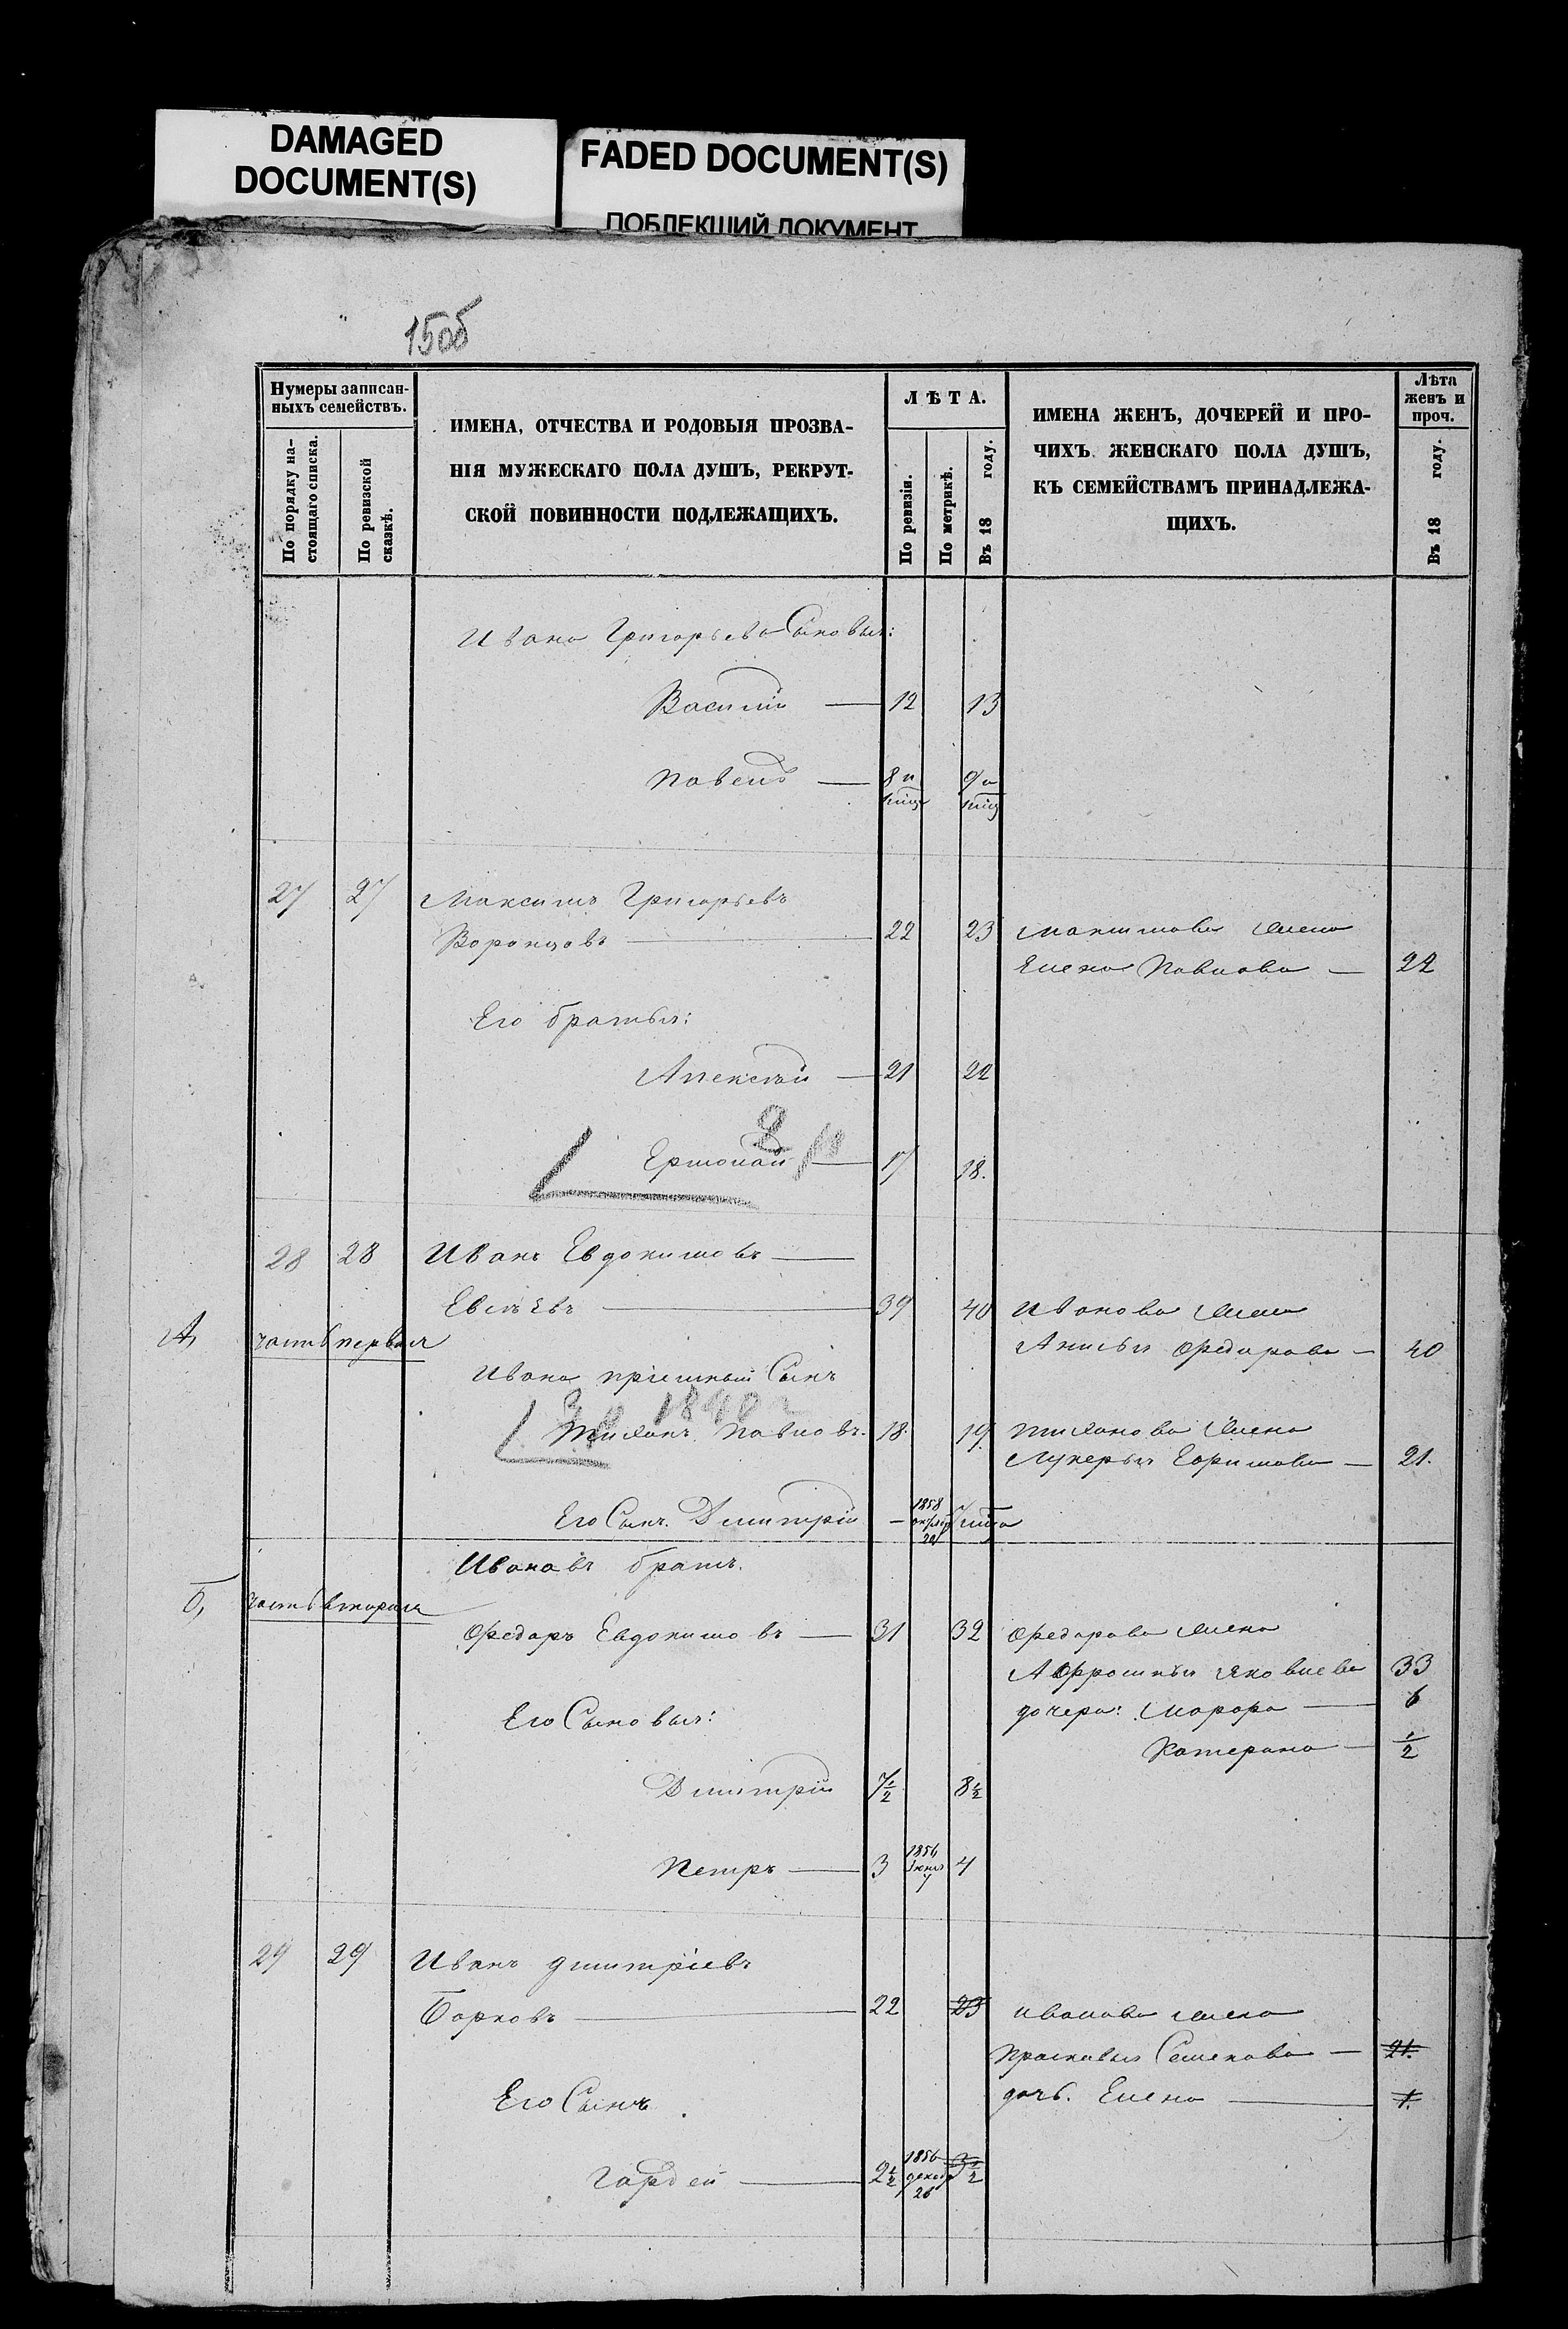 DAMAGED
DOCUMENT(S)
FADED DOCUMENT(S)
ПОБЛЕКШИЙ ДОКУМЕНТ
15об
Нумеры записан-
ныхъ семействъ.
По порядку на-
стоящаго списка.
По ревизской
сказкѣ.
ИМЕНА, ОТЧЕСТВА И РОДОВЫЯ ПРОЗВА-
НІЯ МУЖЕСКАГО ПОЛА ДУШЪ, РЕКРУТ-
СКОЙ ПОВИННОСТИ ПОДЛЕЖАЩИХЪ.
ЛѢТА.
По ревизіи.
По метрикѣ.
Въ 18 году.
ИМЕНА ЖЕНЪ, ДОЧЕРЕЙ И ПРО-
ЧИХЪ ЖЕНСКАГО ПОЛА ДУШЪ,
КЪ СЕМЕЙСТВАМЪ ПРИНАДЛЕЖА-
ЩИХЪ.
Лѣта
женъ и
проч.
Въ 18 году.
Ивана Григорьева Сыновья:
Василий — 12 13
Павелъ — 8 и 9 и
27 27 Максимъ Григорьевъ
Воронцовъ — 22 23 Максимова жена
Елена Павлова — 22
Его братья:
Алексѣй — 21 22
2
Ермолай — 17 18.
28 28 Иванъ Евдокимовъ —
Евсѣевъ — 39 40 Иванова жена
А, часть первая
Анисья Федорова — 40
Ивана пріемный Сынъ
1840
Тиханъ Павловъ. 18. 19. Тиханова жена
Лукерья Ефимова — 21.
Его Сынъ. Дмитрій — 1858
Ивановъ братъ.
Б, часть вторая
Федоръ Евдокимовъ — 31 32 Федорова жена
Афросинья Яковлева 33
дочери: Марфа — 6
Его Сыновья:
Катерина — 1/2
Дмитрій 7 1/2 8 1/2
Петръ — 3 1856 4
29 29 Иванъ Дмитріевъ
Борковъ — 22 23 Иванова жена
Прасковья Семенова — 21.
Его Сынъ
дочь. Елена — 1.
Гордей — 2 1/2 1856 декаб 26 3 1/2